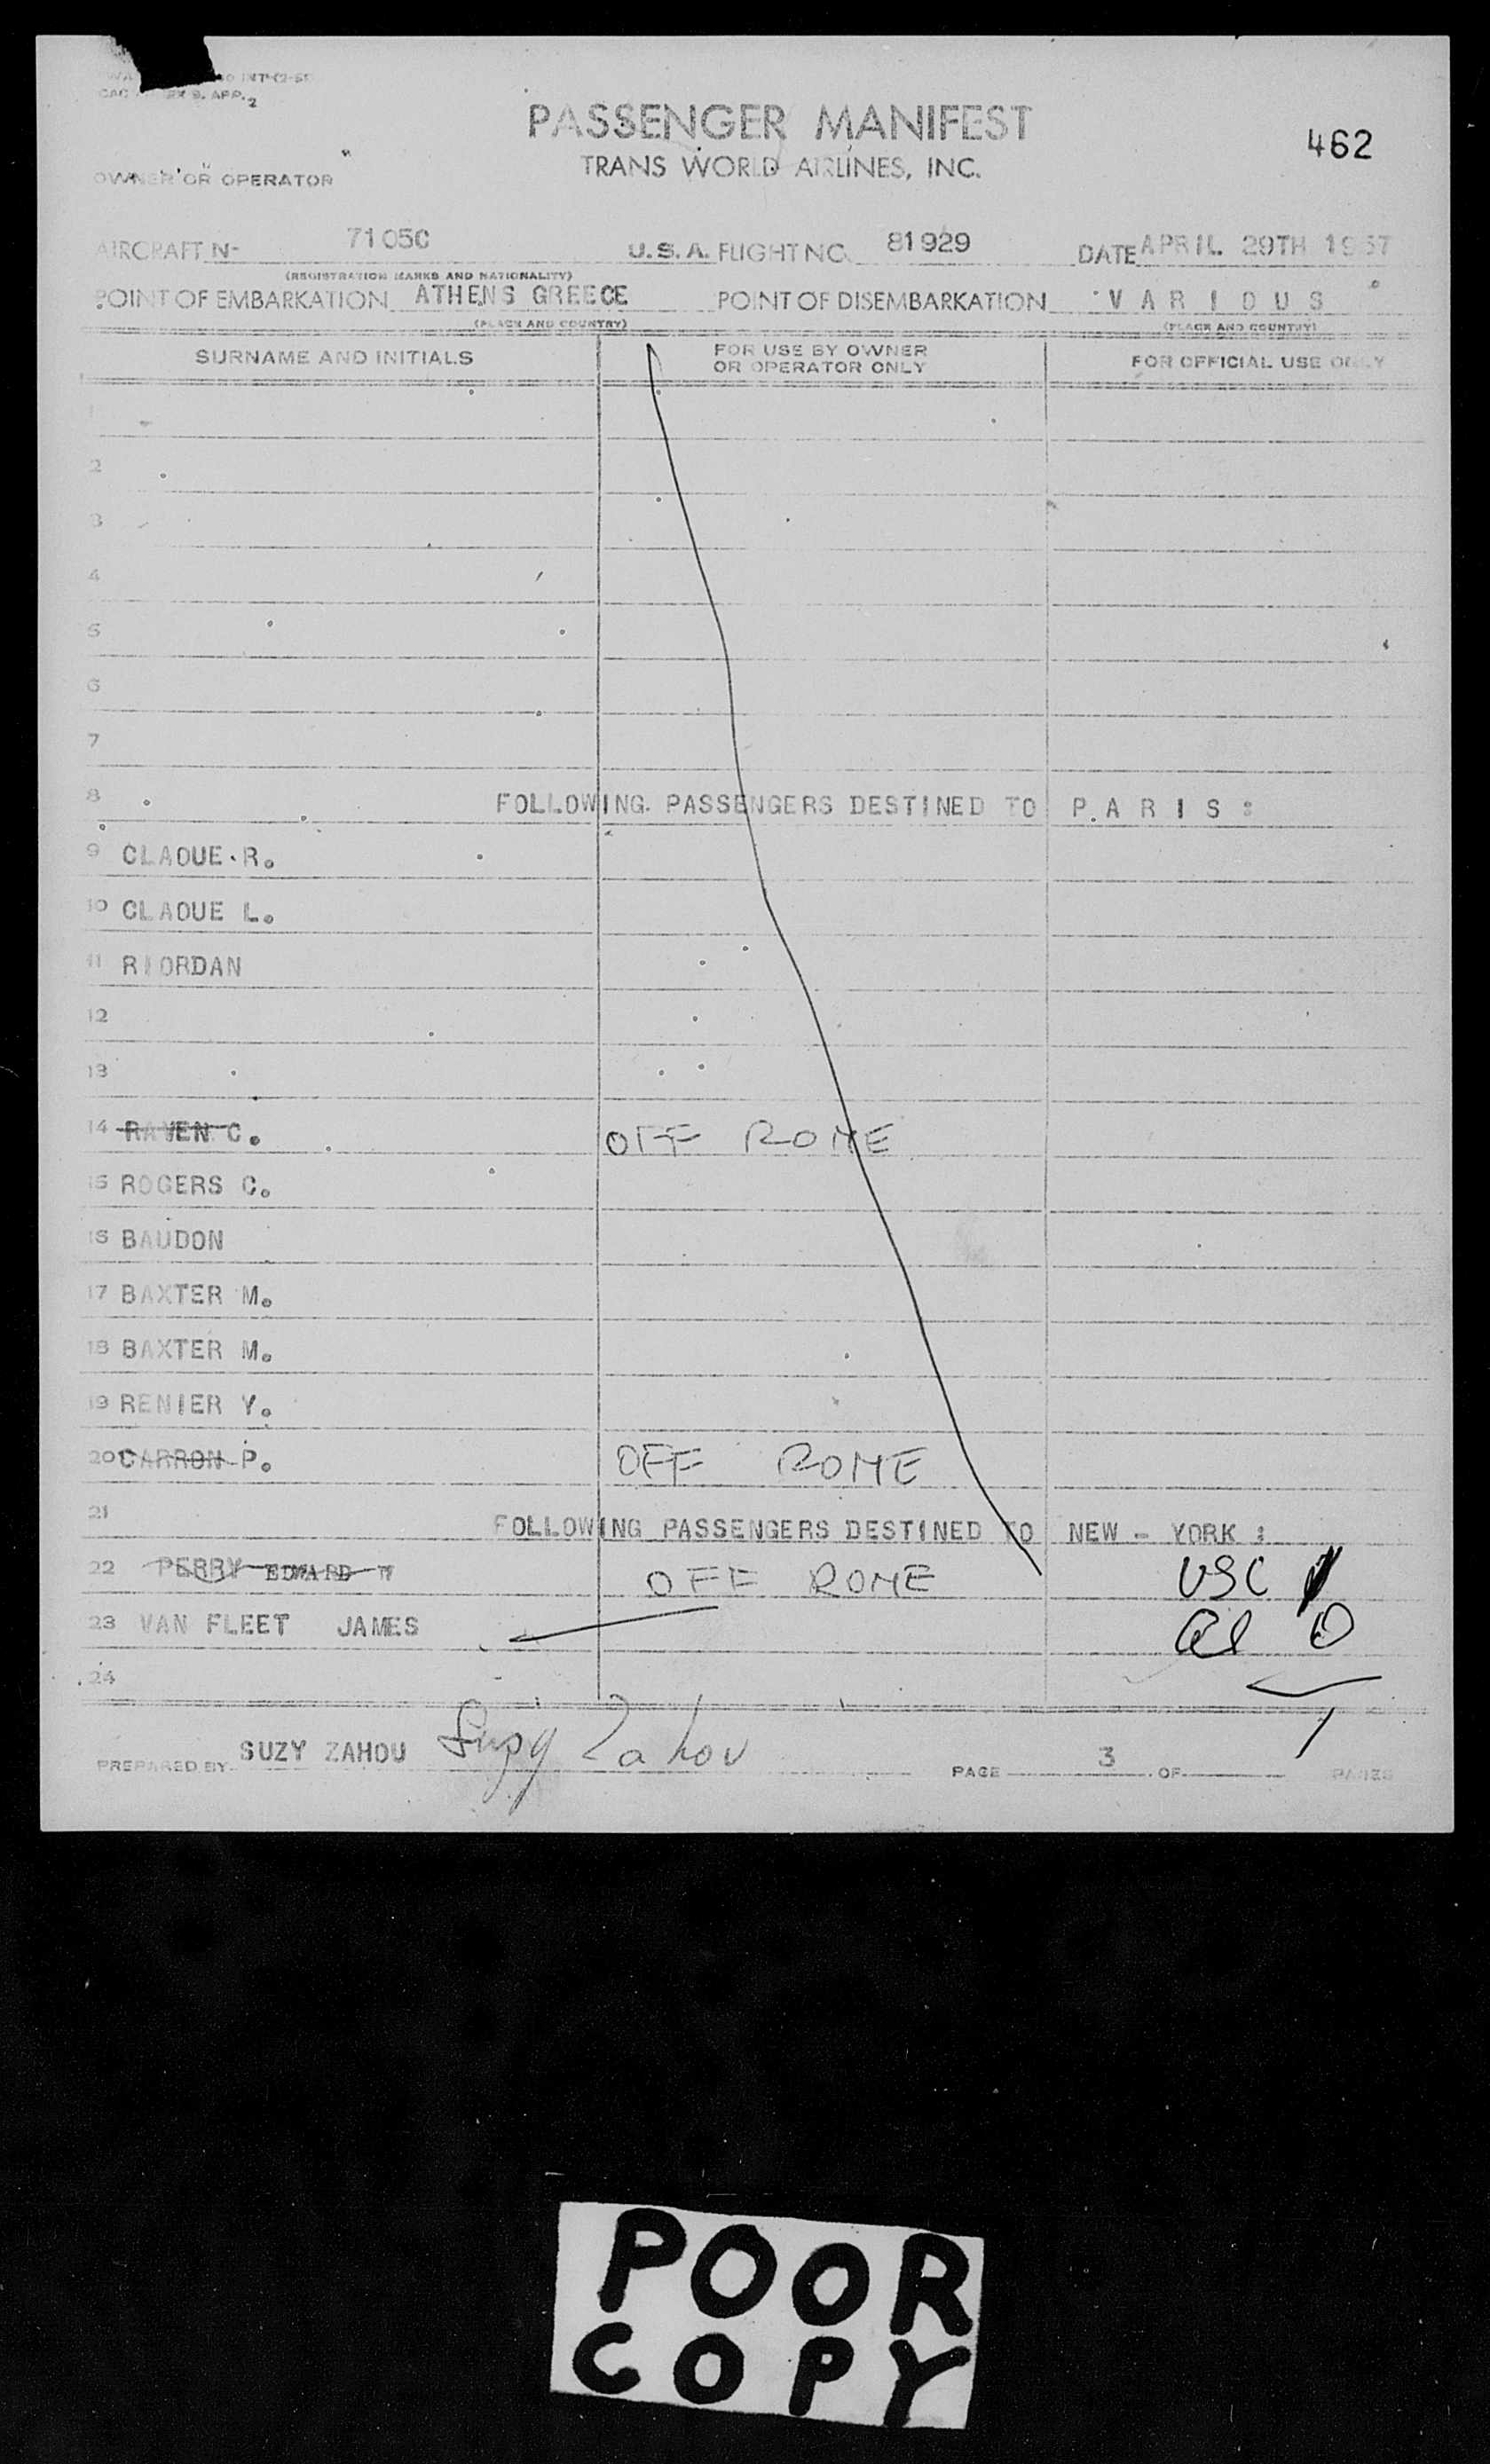 INT-(2-5
CAC EX 9. APP. 2
PASSENGER MANIFEST
462
TRANS WORLD AIRLINES, INC.
OWNER OR OPERATOR
AIRCRAFT N- 7105C U.S.A. FLIGHT NO. 81929 DATE APRIL 29TH 1957
(REGISTRATION MARKS AND NATIONALITY)
POINT OF EMBARKATION ATHENS GREECE POINT OF DISEMBARKATION VARIOUS
(PLACE AND COUNTRY) (PLACE AND COUNTRY)
SURNAME AND INITIALS FOR USE BY OWNER OR OPERATOR ONLY FOR OFFICIAL USE ONLY
1
2
3
4
5
6
7
8 FOLLOWING PASSENGERS DESTINED TO PARIS:
9 CLAOUE R.
10 CLAOUE L.
11 RIORDAN
12
13
14 RAVEN C. OFF ROME
15 ROGERS C.
16 BAUDON
17 BAXTER M.
18 BAXTER M.
19 RENIER Y.
20 CARRON P. OFF ROME
21 FOLLOWING PASSENGERS DESTINED TO NEW - YORK :
22 PERRY EDWARD W OFF ROME USC
23 VAN FLEET JAMES
24
PREPARED BY SUZY ZAHOU Suzy Zahou PAGE 3 OF PAGES
POOR
COPY